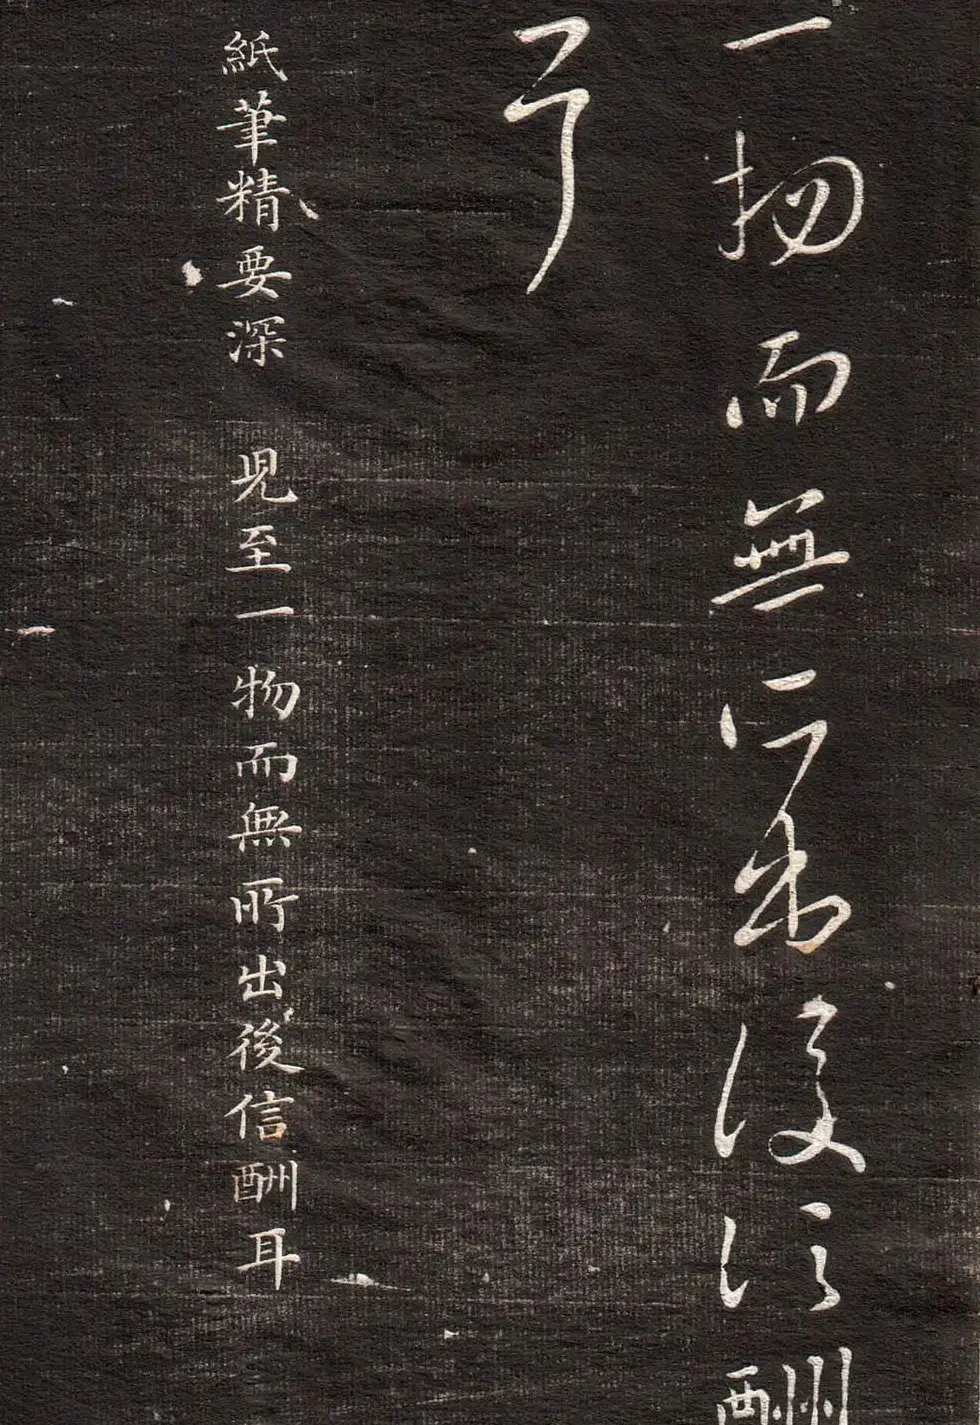 一物而無所出後信酬
耳
紙筆精要深 見至一物而無所出後信酬耳